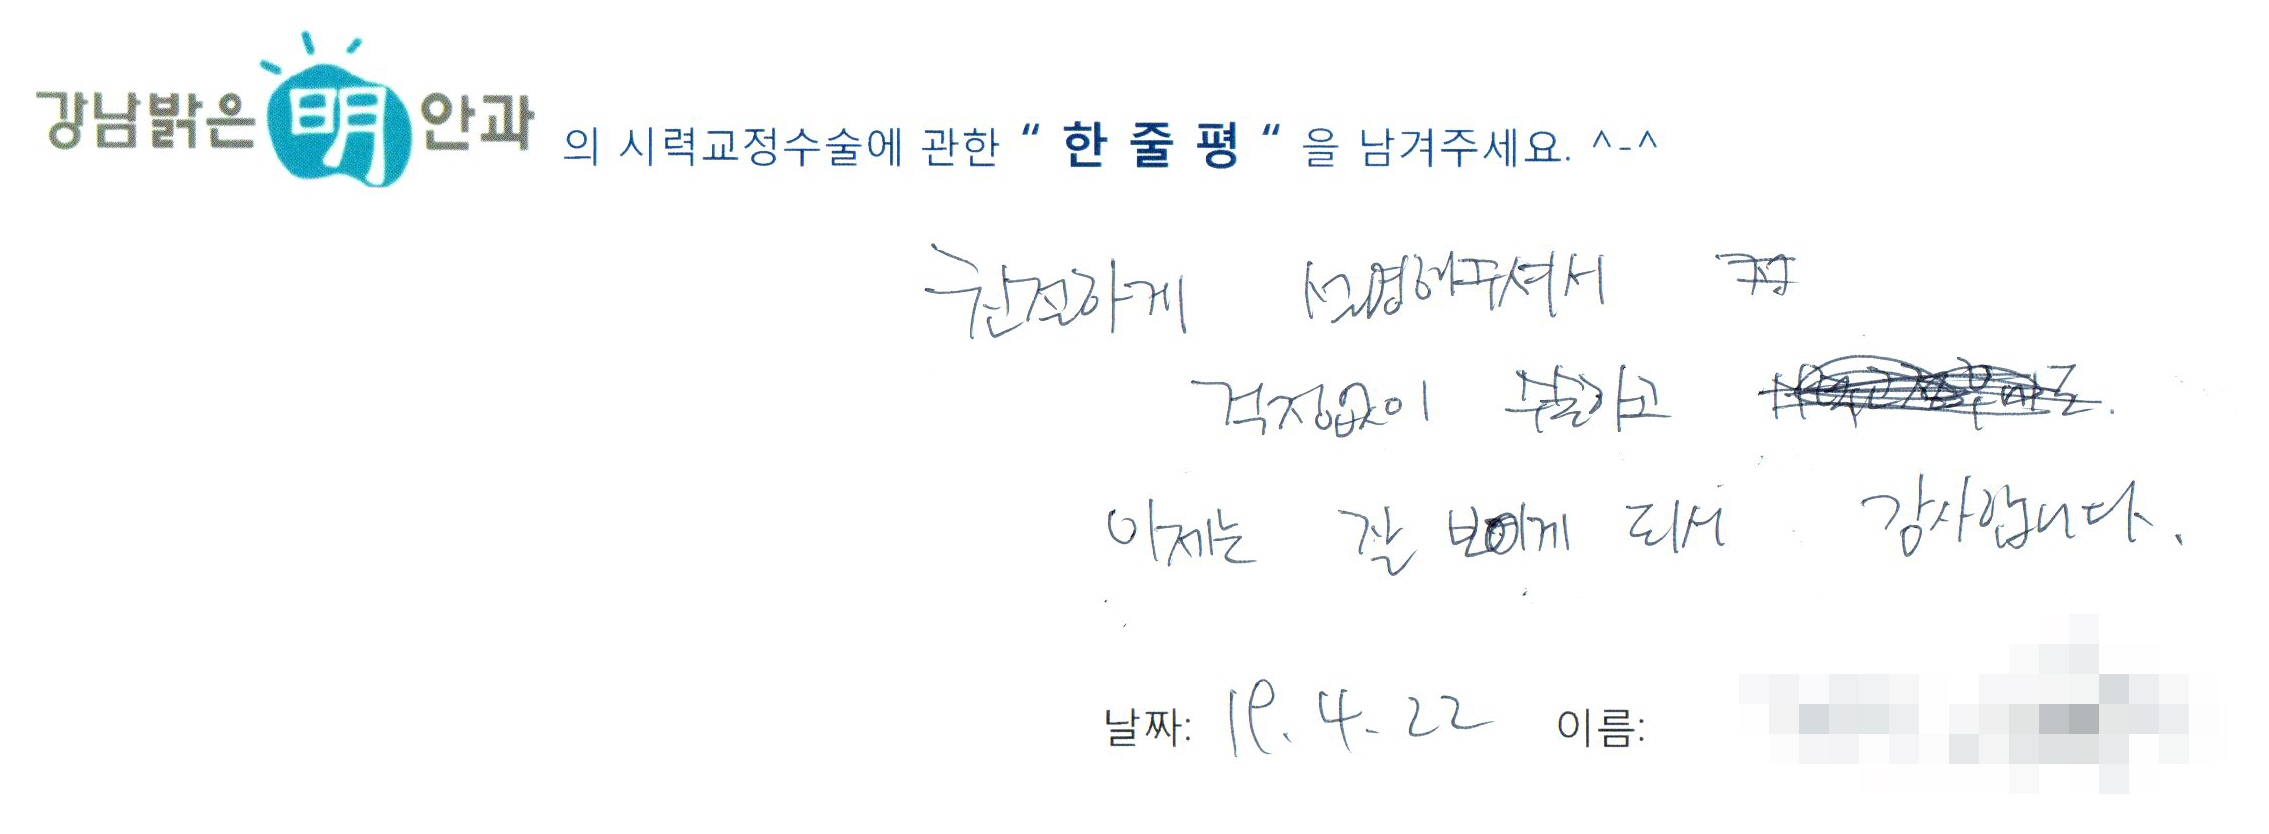 강남밝은 明 안과 의 시력교정수술에 관한 “ 한 줄 평 “ 을 남겨주세요. ^-^
친절하게 설명해주셔서
걱정없이 수술하고
이제는 잘 보이게 되서 감사합니다.
날짜: 19. 4. 22 이름: